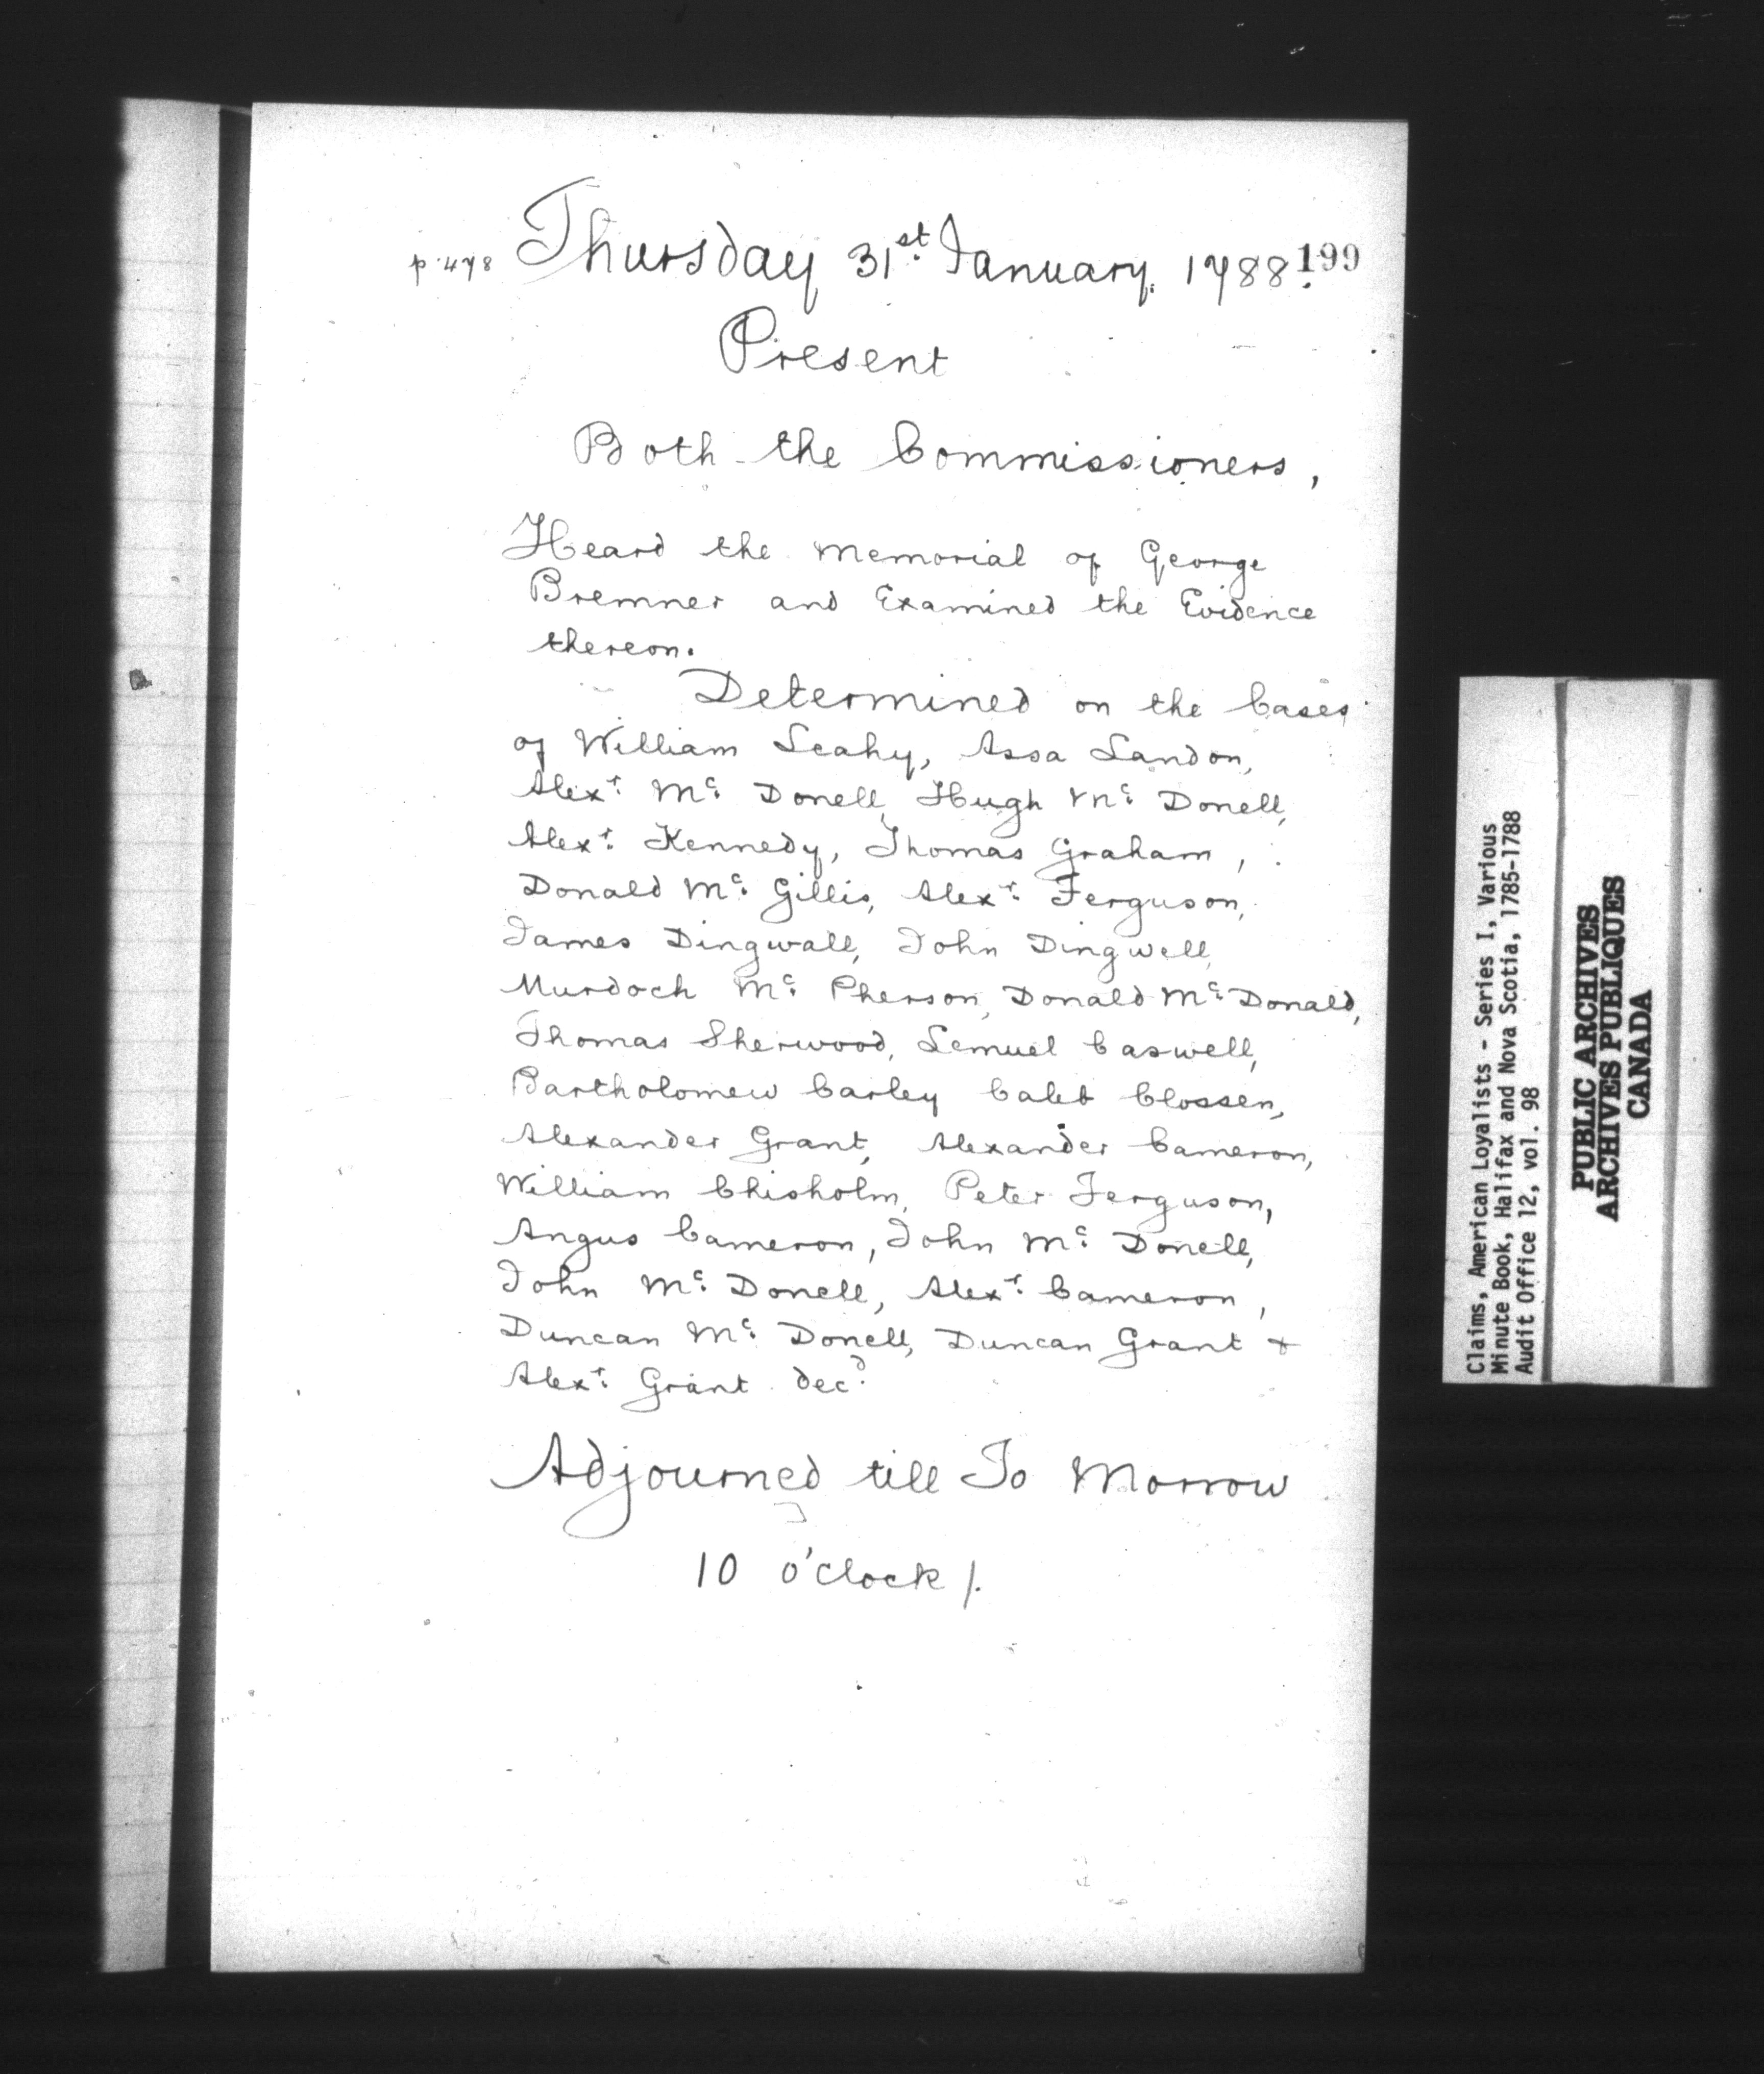 p. 478 Thursday 31st January. 1788. 199
Present
Both the Commissioners,
Heard the Memorial of George
Bremner and Examined the Evidence
thereon.
Determined on the Cases
of William Leahy, Assa Landon,
Alexr. Mc. Donell, Hugh Mc. Donell,
Alexr. Kennedy, Thomas Graham,
Donald Mc. Gillis, Alexr. Ferguson,
James Dingwall, John Dingwell,
Murdoch Mc. Pherson, Donald Mc. Donald,
Thomas Sherwood, Lemuel Caswell,
Bartholomew Carley Caleb Clossen,
Alexander Grant, Alexander Cameron,
William Chisholm, Peter Ferguson,
Angus Cameron, John Mc. Donell,
John Mc. Donell, Alexr. Cameron,
Duncan Mc. Donell, Duncan Grant &
Alexr. Grant decd.
Adjourned till To Morrow
10 o'clock /.
Claims, American Loyalists - Series I, Various
Minute Book, Halifax and Nova Scotia, 1785-1788
Audit Office 12, vol. 98
PUBLIC ARCHIVES
ARCHIVES PUBLIQUES
CANADA